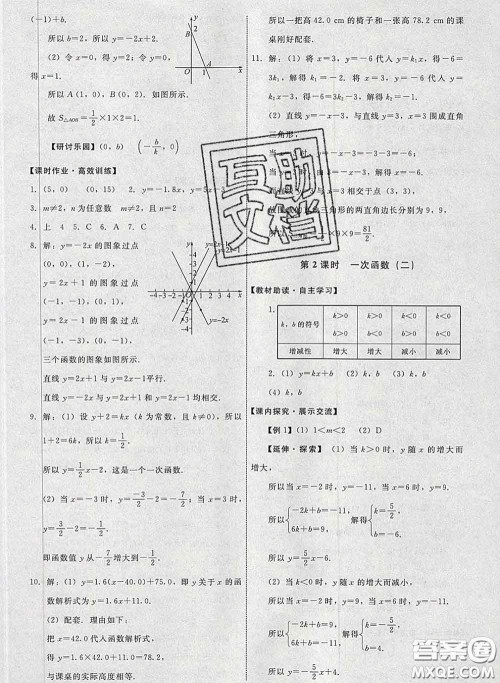 (－1)+b.
所以 b=2，所以 y=－2x+2.
(2) 令 x=0，得 y=2；令 y=0，
得 x=1.
所以 A(1，0)，B(0，2)，如图所示.
故 S△AOB=1/2×1×2=1.
【研讨乐园】(0，b) (－b/k，0)
【课时作业·高效训练】
1. (5，0) (0，15) 2. y=－1.8x，y=
3. m≠2，n 为任意数 m≠2 且 n=2
4. 上 4 5. C 6. A 7. C
8. 解：y=－2x 的图象过点
(0，0)，(1，－2)
y=2x 的图象过点
y=2x+1 的图象过点
(0，1)，(1，3).
三个函数的图象如图所示.
直线 y=2x+1 与 y=2x 平行.
直线 y=－2x 与 y=2x+1 和 y=2x 均相交.
9. 解：(1) 设 y+2=kx (k 为常数，且 k≠0)，所以
1+2=6k，所以 k=1/2.
所以 y=1/2x－2，这是一个一次函数.
(2) 当 x=－3 时，y=－3/2－2=－7/2；当 x=3 时，
y=3/2－2=－1/2.
即函数值 y 从－7/2增大到－1/2.
10. 解：(1) y=1.6(x－40)+75.0，即 y 关于 x 的函
数解析式为 y=1.6x+11.0.
(2) 配套. 理由如下：
把 x=42.0 代入函数解析式，
得 y=1.6×42.0+11.0=78.2.
与课桌的实际高度相等.
y
B
O
A
1
x
y=2x+1
y=2x
y=－2x
所以一把高 42.0 cm 的椅子和一张高 78.2 cm 的课
桌刚好配套.
11. 解：(1) 将 x=3，y=－6 代入 y=k₁x，得－6=
3k₁，解得 k₁=－2. 将 x=3，y=－6 代入 y=k₂x－
3，得－6=3k₂－3，解得 k₂=－1.
(2) y=－x－3 与直线 y=－x+3 围成直角
三角形，
当 x=
所以
x+3 与 x 轴相交于点 (3，0).
三角形的两直角边长分别为 9，9，
×9×9=81/2.
第 2 课时 一次函数 (二)
【教材助读·自主学习】
1.
k，b 的符号 k>0 b>0 k>0 b<0 k<0 b>0 k<0 b<0
增减性 增大 增大 减小 减小
2. (1) y=kx+b (2) (3)
(4) k，b
【课内探究·展示交流】
【例 1】(1) 1<m<2 (2) D
【延伸·探索】(1) 当 k>0 时，y 随 x 的增大而
增大，
所以当 x=－2 时，y=－11，当 x=6 时，y=9.
所以{－2k+b=－11，6k+b=9. 解得{k=5/2，b=－6.
所以 y=5/2x－6.
(2) 当 k<0 时，y 随 x 的增大而减小，
所以当 x=－2 时，y=9，当 x=6 时，y=－11.
所以{－2k+b=9，6k+b=－11. 解得{k=－5/2，b=4.
所以 y=－5/2x+4.
互助文档
答案圈
MXQE.COM